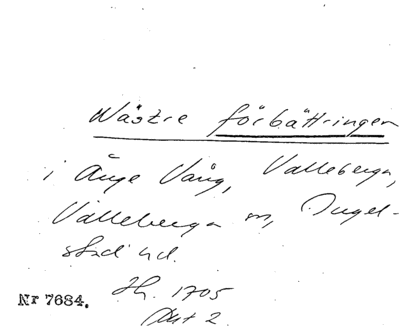 Wästre förbättringen
i Änge Vång, Valleberga,
Valleberga sn, Ingel-
stad hd.
Nr 7684. Jh. 1705
Akt 2.